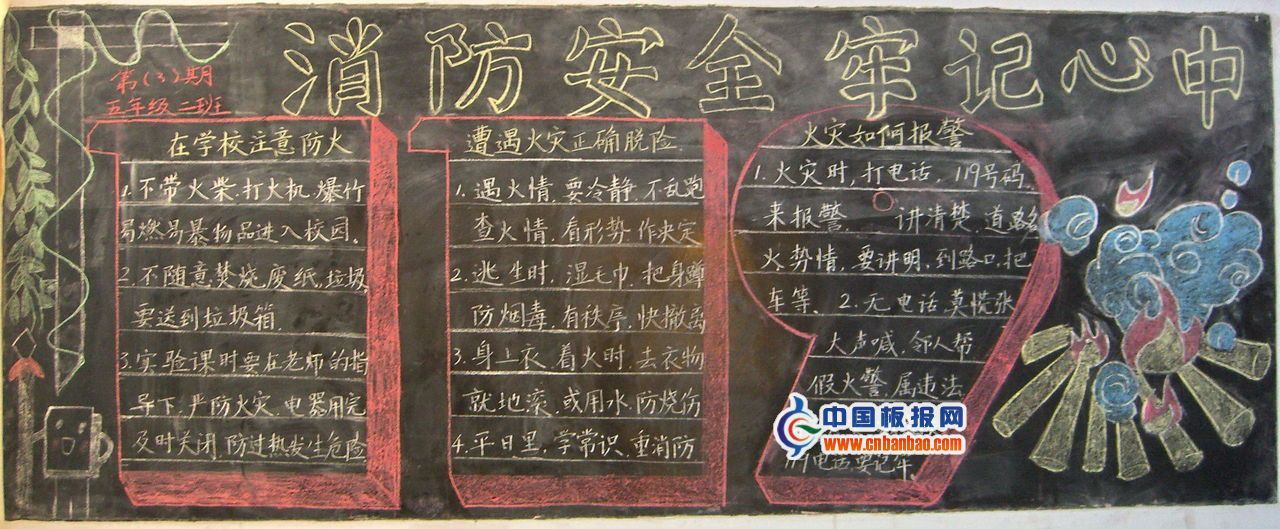 消防安全牢记心中
第(3)期
五年级二班
在学校注意防火
1.不带火柴.打火机.爆竹
易燃易暴物品进入校园。
2.不随意焚烧.废纸.垃圾
要送到垃圾箱.
3.实验课时要在老师的指
导下.严防火灾.电器用完
及时关闭.防过热发生危险
遭遇火灾正确脱险.
1.遇火情.要冷静.不乱跑
查火情.看形势.作决定
2.逃生时.湿毛巾.把身蹲
防烟毒.有秩序.快撤离
3.身上衣.着火时.去衣物
就地滚.或用水.防烧伤
4.平日里.学常识.重消防
火灾如何报警
1.火灾时,打电话.119号码.
来报警. 讲清楚.道路名
火势情.要讲明.到路口.把
车等. 2.无电话.莫慌张
大声喊.邻人帮
假火警.属违法
电话要记牢.
中国板报网
www.cnbanbao.com